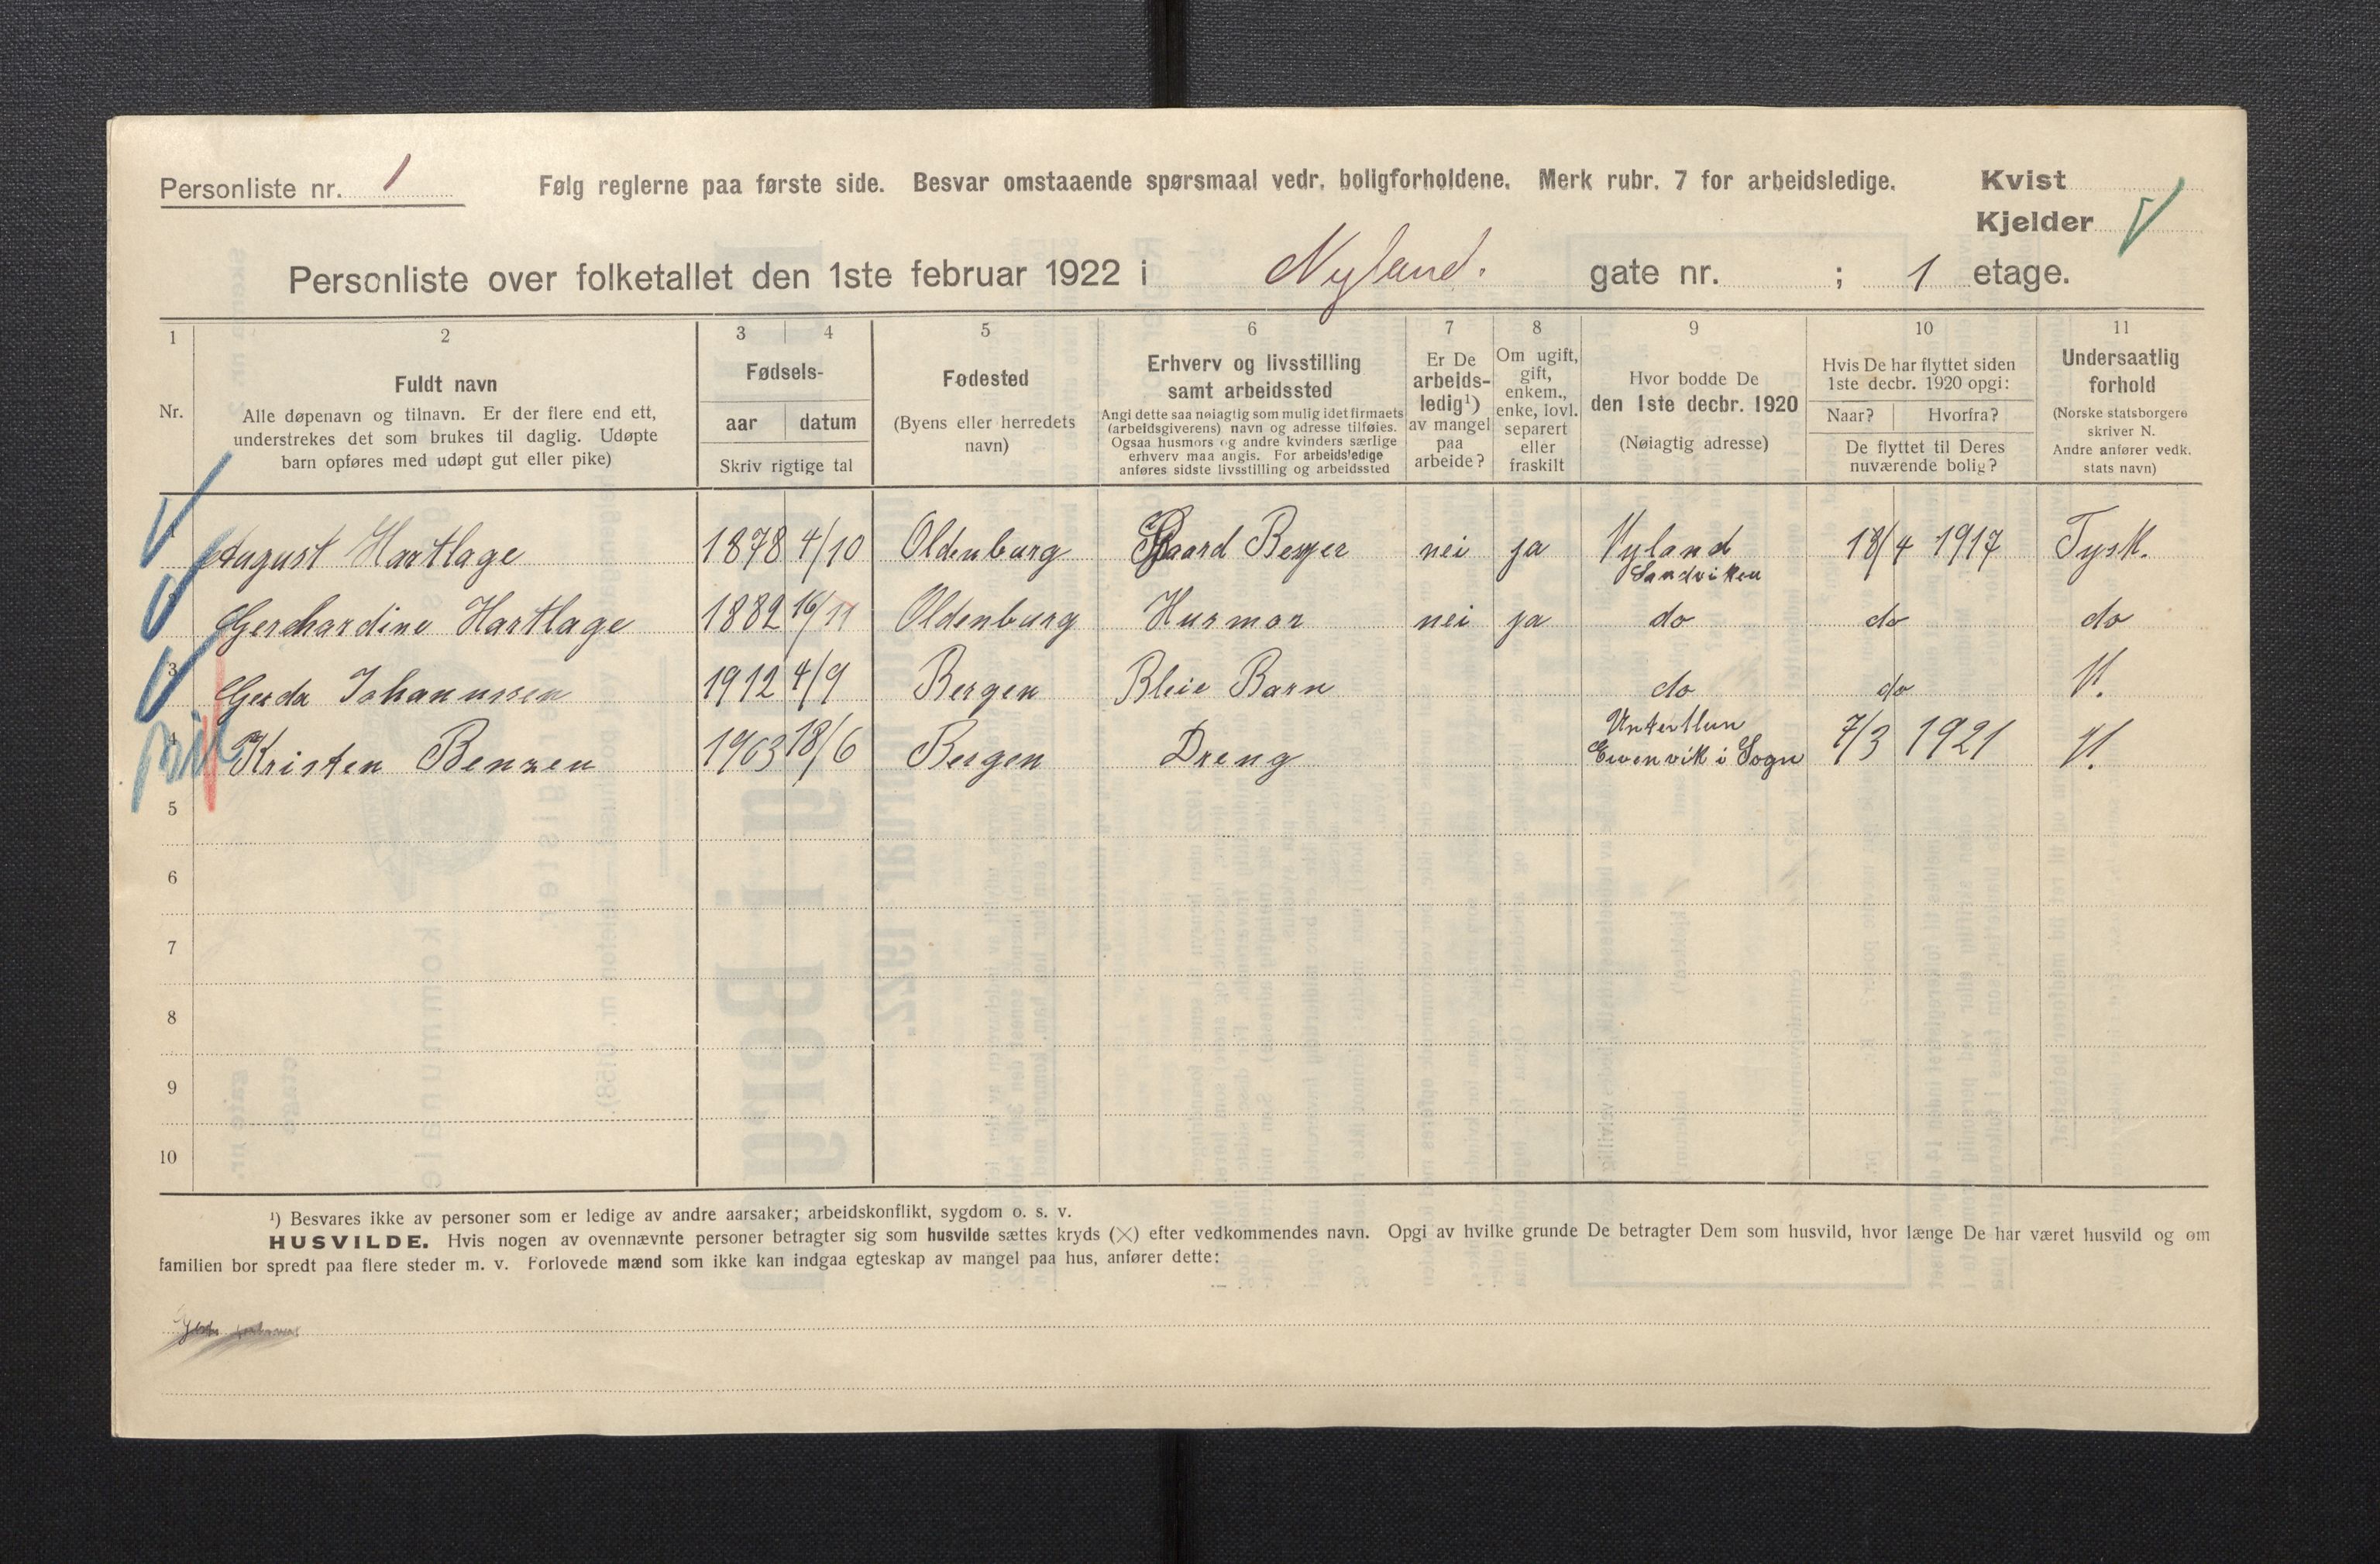 Personliste nr. 1
Følg reglerne paa første side. Besvar omstaaende spørsmaal vedr. boligforholdene. Merk rubr. 7 for arbeidsledige.
Kvist
Kjelder
Personliste over folketallet den 1ste februar 1922 i Nyland. gate nr. ; 1 etage.
1 2 3 4 5 6 7 8 9 10 11
Nr.
Fuldt navn
Alle døpenavn og tilnavn. Er der flere end ett,
understrekes det som brukes til daglig. Udøpte
barn opføres med udøpt gut eller pike)
Fødsels-
aar datum
Skriv rigtige tal
Fødested
(Byens eller herredets
navn)
Erhverv og livsstilling
samt arbeidssted
Angi dette saa nøiagtig som mulig idet firmaets
(arbeidsgiverens) navn og adresse tilføies.
Ogsaa husmors og andre kvinders særlige
erhverv maa angis. For arbeidsledige
anføres sidste livsstilling og arbeidssted
Er De
arbeids-
ledig¹)
av mangel
paa
arbeide?
Om ugift,
gift,
enkem.,
enke, lovl.
separert
eller
fraskilt
Hvor bodde De
den 1ste decbr. 1920
(Nøiagtig adresse)
Hvis De har flyttet siden
1ste decbr. 1920 opgi:
Naar? Hvorfra?
De flyttet til Deres
nuværende bolig?
Undersaatlig
forhold
(Norske statsborgere
skriver N.
Andre anfører vedk.
stats navn)
August Hartlage 1878 4/10 Oldenburg Gaard Besyer nei ja Nyland Sandviken 18/4 1917 Tysk.
2 Gerdhardine Hartlage 1882 16/11 Oldenburg Husmor nei ja do do do
3 Gerda Johannssen 1912 4/9 Bergen Bleie Barn do do N.
4 Kristen Benzen 1903 18/6 Bergen Dreng Evenvik i Sogn 7/3 1921 N.
5
6
7
8
9
10
¹) Besvares ikke av personer som er ledige av andre aarsaker; arbeidskonflikt, sygdom o. s. v.
HUSVILDE. Hvis nogen av ovennævnte personer betragter sig som husvilde sættes kryds (×) efter vedkommendes navn. Opgi av hvilke grunde De betragter Dem som husvild, hvor længe De har været husvild og om
familien bor spredt paa flere steder m. v. Forlovede mænd som ikke kan indgaa egteskap av mangel paa hus, anfører dette: